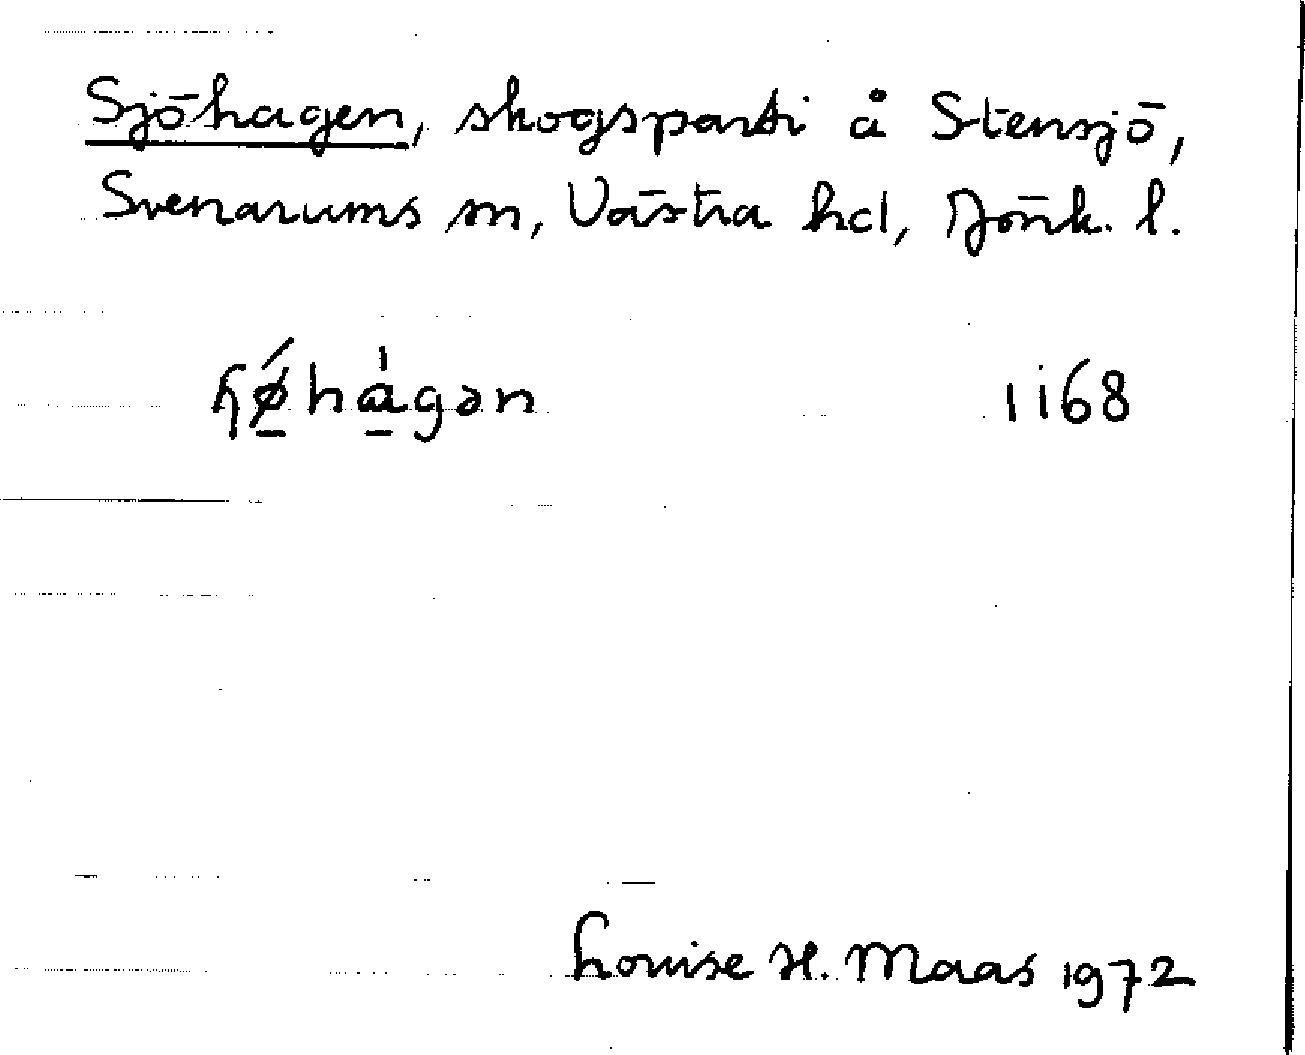 Sjöhagen, skogsparti å Stensjö,
Svenarums sn, Västra hd, Jönk. l.
ɧǿ̲hɑ̲̍gən 1168
Louise H. Maas 1972